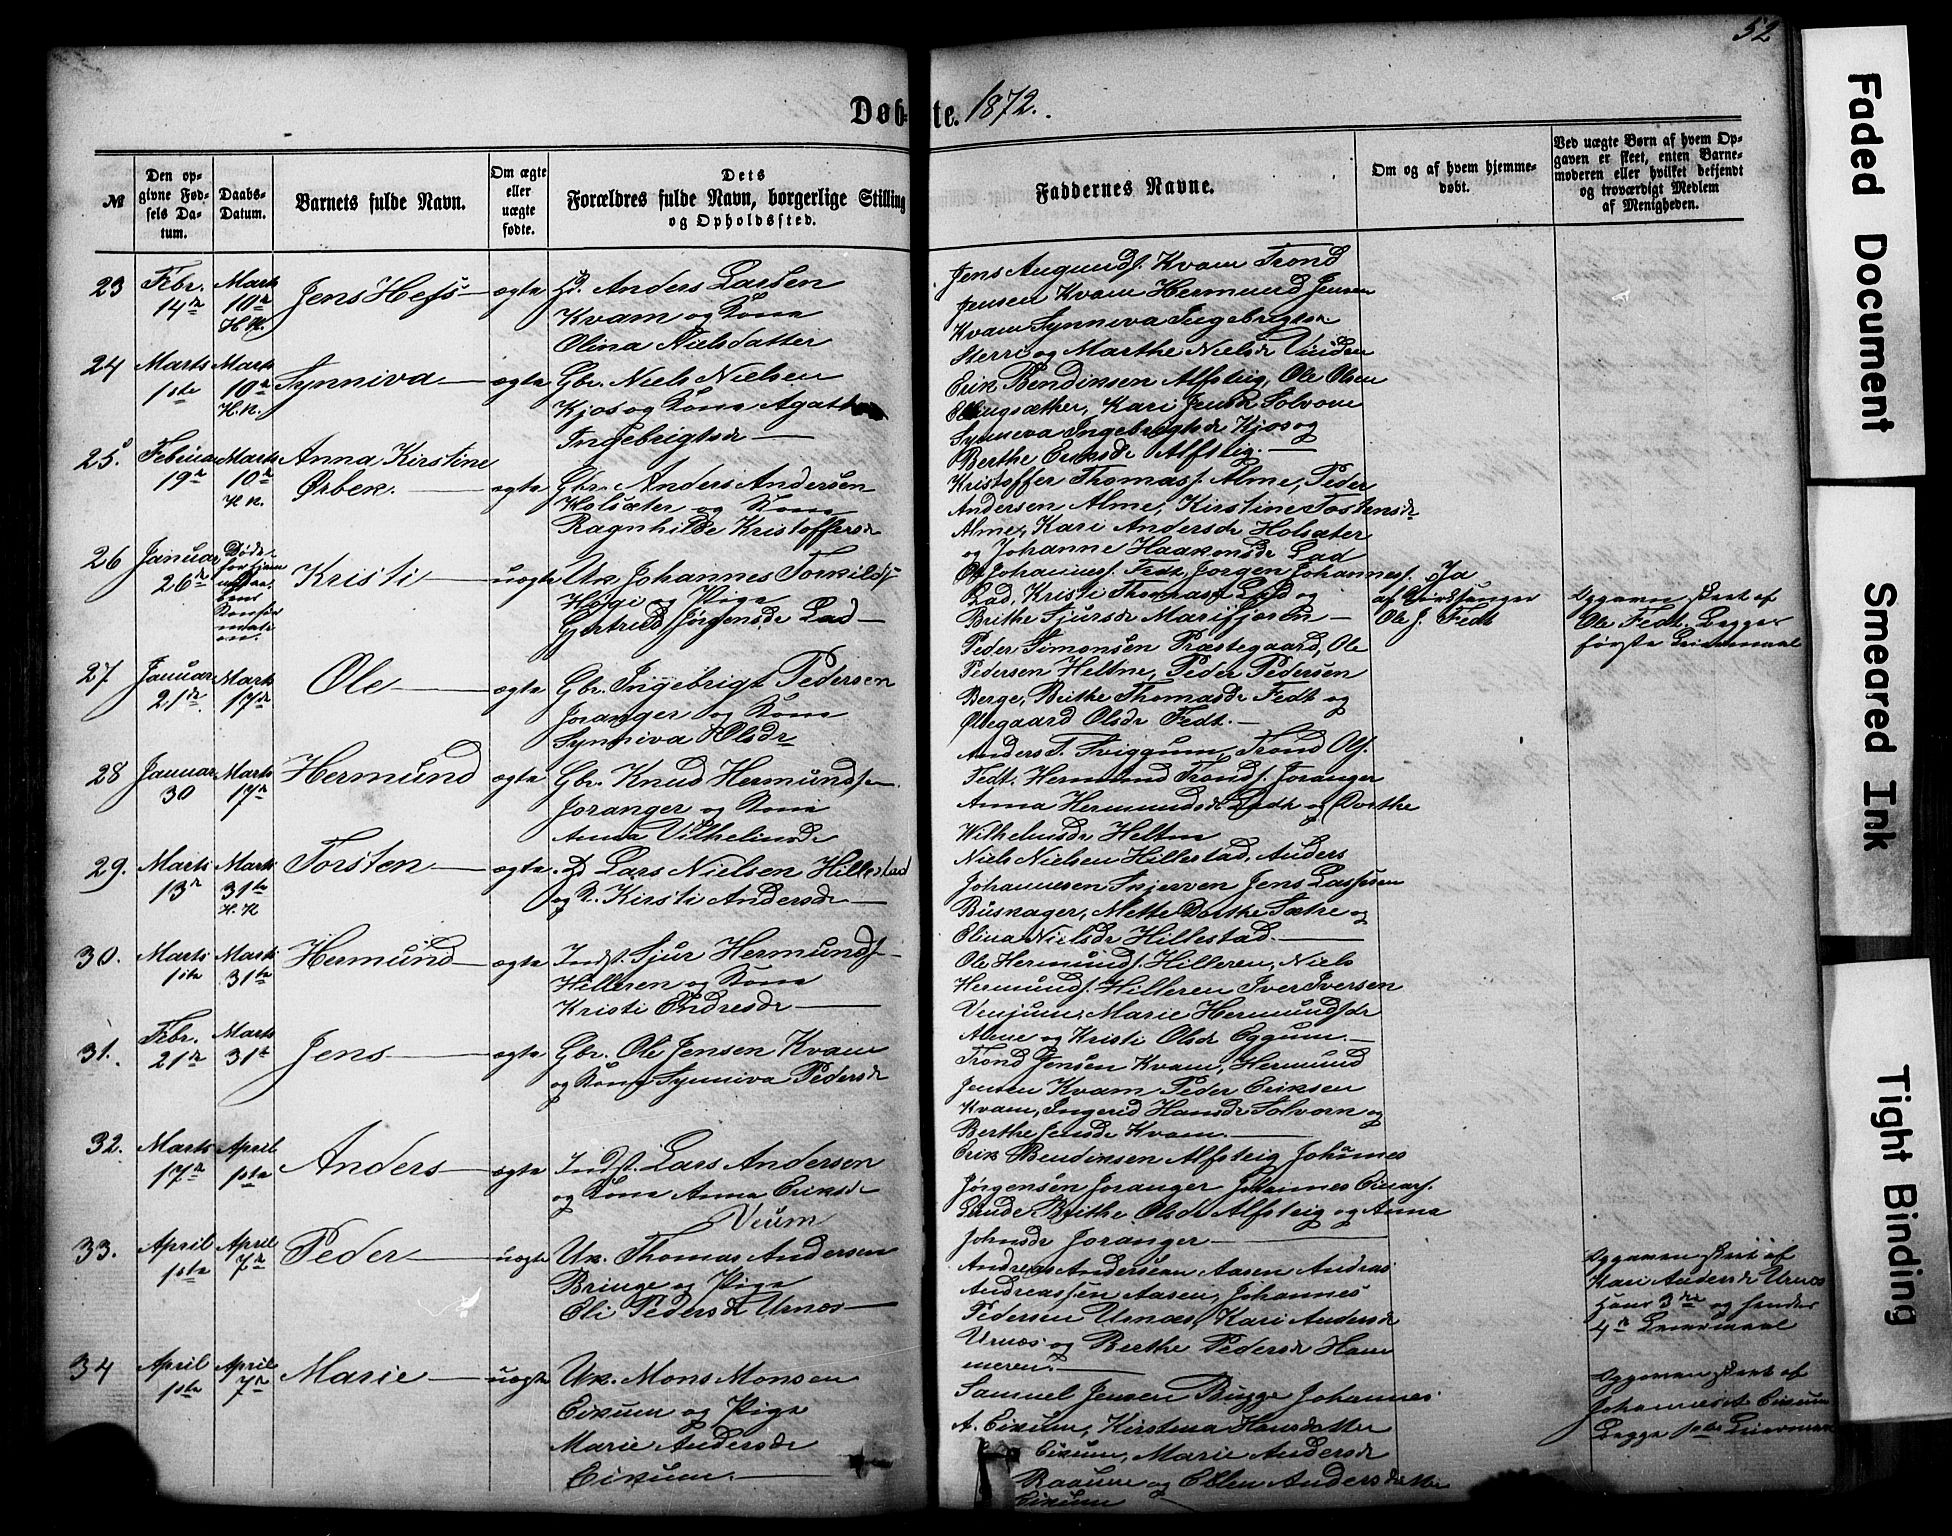 52
Døbte. 1872.
№
Den opgivne Fødsels Datum.
Daabs-Datum.
Barnets fulde Navn.
Om ægte eller uægte fødte.
Dets Forældres fulde Navn, borgerlige Stilling og Opholdssted.
Faddernes Navne.
Om og af hvem hjemmedøbt.
Ved uægte Børn af hvem Opgaven er skeet, enten Barnemoderen eller hvilket desjendt og troværdigt Medlem af Menigheden.
23 Febr. 14de Marts 10de H.K. Jens Hess ægte Anders Larsen
Kvam og Kone
Olina Nielsdatter
Jens Augunds. Kvam Trond
Jensen Kvam Hermund Jensen
Kvam Synneva Ingebrigtsdr
Sterri og Marthe Nielsdr
24 Marts 1ste Marts 10de H.K. Synniva ægte Gbr. Niels Nielsen
Kjos og Kone Agathe
Ingebrigtsdr
Erik Bendiksen Alfsteig, Ole Olsen
Kari Jensdr Solvorn
Synneva Ingebrigtsdr Kjos og
Berthe Eriksdr Alfsteig.
25. Februar 19de Marts 10de H.K. Anna Kirstine
Ørbek. ægte Gbr. Anders Andersen
Holsæter og Kone
Ragnhilde Kristoffersdr
Kristoffer Thomas. Alme, Peder
Andersen Alme, Kirstine Tostensdr
Alme, Kari Andersdr Holsæter
og Johanne Haakonsdr Lad
26 Januar 26de Kristi uægte Uk. Johannes Torkilds.
Høgi og Pige
Gjertrud Jørgensdr Lad
Ole Johanness. Fedt, Jørgen Johanness.
Lad, Kristi Thomasdr Lad og
Brithe Sjursdr Marifjøren
Ja
af Kirksanger
Ole J. Fedt
Opgaven skeet af
Ole Fedt. Begges
første Leiermaal
27 Januar 21de Marts 17de Ole ægte Gbr. Ingebrigt Pedersen
Joranger og Kone
Synniva Olsdr
Peder Simonsen Præstegaard, Ole
Pedersen Heltne, Peder Pedersen
Berge, Brithe Thomasdr Fedt og
Olsdr Fedt.
28 Januar 30 Marts 17de Hermund ægte Gbr. Knud Hermunds.
Joranger og Kone
Anna Vilhelmsdr
Anders T. Sviggum, Trond Ols.
Fedt, Hermund Tronds. Joranger
Anna Hermundsdr og Dorthe
Wilhelmsdr Heltne
29. Marts 13de Marts 31te H.K. Torsten ægte Lars Nielsen Hillestad
og K. Kirsti Andersdr
Niels Nielsen Hillestad, Anders
Johannesen Skjerven Jens Lassesen
Buskager, Mette Dorthe Sætre og
Olina Nielsdr Hillestad.
30. Marts 1ste Marts 31te Hermund ægte Indst. Sjur Hermunds.
Hilleren og Kone
Kristi Endresdr
Ole Hermunds. Hilleren, Niels
Hermunds. Hilleren Iver Iversen
Venjum, Marie Hermundsdr
Alme og Kristi Olsdr Eggum.
31. Febr. 21de Marts 31te Jens ægte Gbr. Ole Jensen Kvam
og Kone Synniva Pedersdr
Trond Jensen Kvam, Hermund
Jensen Kvam Peder Eriksen
Kvam, Ingerid Hansdr Solvorn og
Berthe Jensdr Kvam.
32. Marts 17de April 1ste Anders ægte Indst. Lars Andersen
og Kone Anna Eriksdr
Veum
Erik Bendiksen Alfsteig Johannes
Jørgensen Joranger Johannes Einars.
Brithe Olsdr Alfsteig og Anna
Johnsdr Joranger
33. April 1ste April 7de Peder uægte Uk. Thomas Andersen
Bringe og Pige
Eli Pedersdr Urnes
Andreas Andersen Aasen Andreas
Andreassen Aasen, Johannes
Pedersen Urnæs, Kari Andersdr
Urnes og Berthe Pedersdr Ham
meren.
Opgaven skeet af
Kari Andersdr Urnes
Hans 3die og hendes
4de Leiermaal
34 April 1ste April 7de Marie uægte Uk. Mons Monsen
Eikum og Pige
Marie Andersdr
Eikum.
Samuel Jensen Bugge Johannes
A. Eikum, Kirstina Hansdatter
Eikum, Marie Andersdr
Raaum og Ellen Andersdatter
Eikum
Opgaven skeet af
Johannes A. Eikum
Begge 1ste Leiermaal
Faded Document
Smeared Ink
Tight Binding